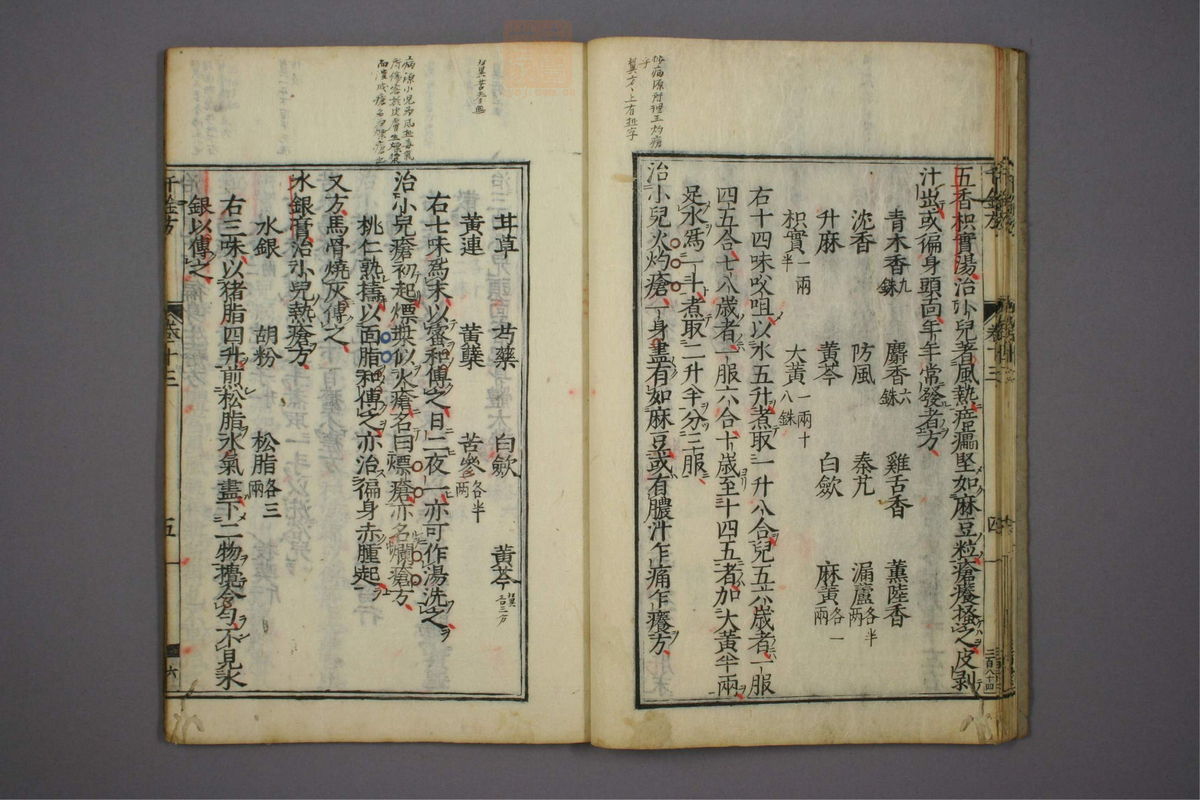 五香枳實湯治小兒著風熱㾦㿔堅如麻豆粒瘡癢搔之皮剥
汁出或徧身頭面年年常發者方
青木香九銖 麝香六銖 雞舌香 薰陸香
沈香 防風 秦艽 漏蘆各半两
升麻 黄芩 白歛 麻黄各一兩
枳實一兩半 大黄一兩十八銖
右十四味㕮咀以水五升煮取一升八合兒五六歳者一服
四五合七八歳者一服六合十歳至十四五者加大黄半兩
足水爲一斗煮取二升半分三服
治小兒火灼瘡一身盡有如麻豆或有膿汁乍痛乍癢方
甘草 芍藥 白歛 黄芩
黄連 黄蘗 苦參各半两
右七味爲末以蜜和傅之日二夜一亦可作湯洗之
治小兒瘡初起熛漿似火瘡名曰熛瘡亦名爛瘡方
桃仁熟擣以面脂和傅之亦治徧身赤腫起
又方馬骨燒灰傅之
水銀膏治小兒熱瘡方
水銀 胡粉 松脂各三兩
右三味以猪脂四升煎松脂水氣盡下二物攪令勻不見水
銀以傅之
千金方
卷十三
五
六
千金方
卷十三
四
三百八十四